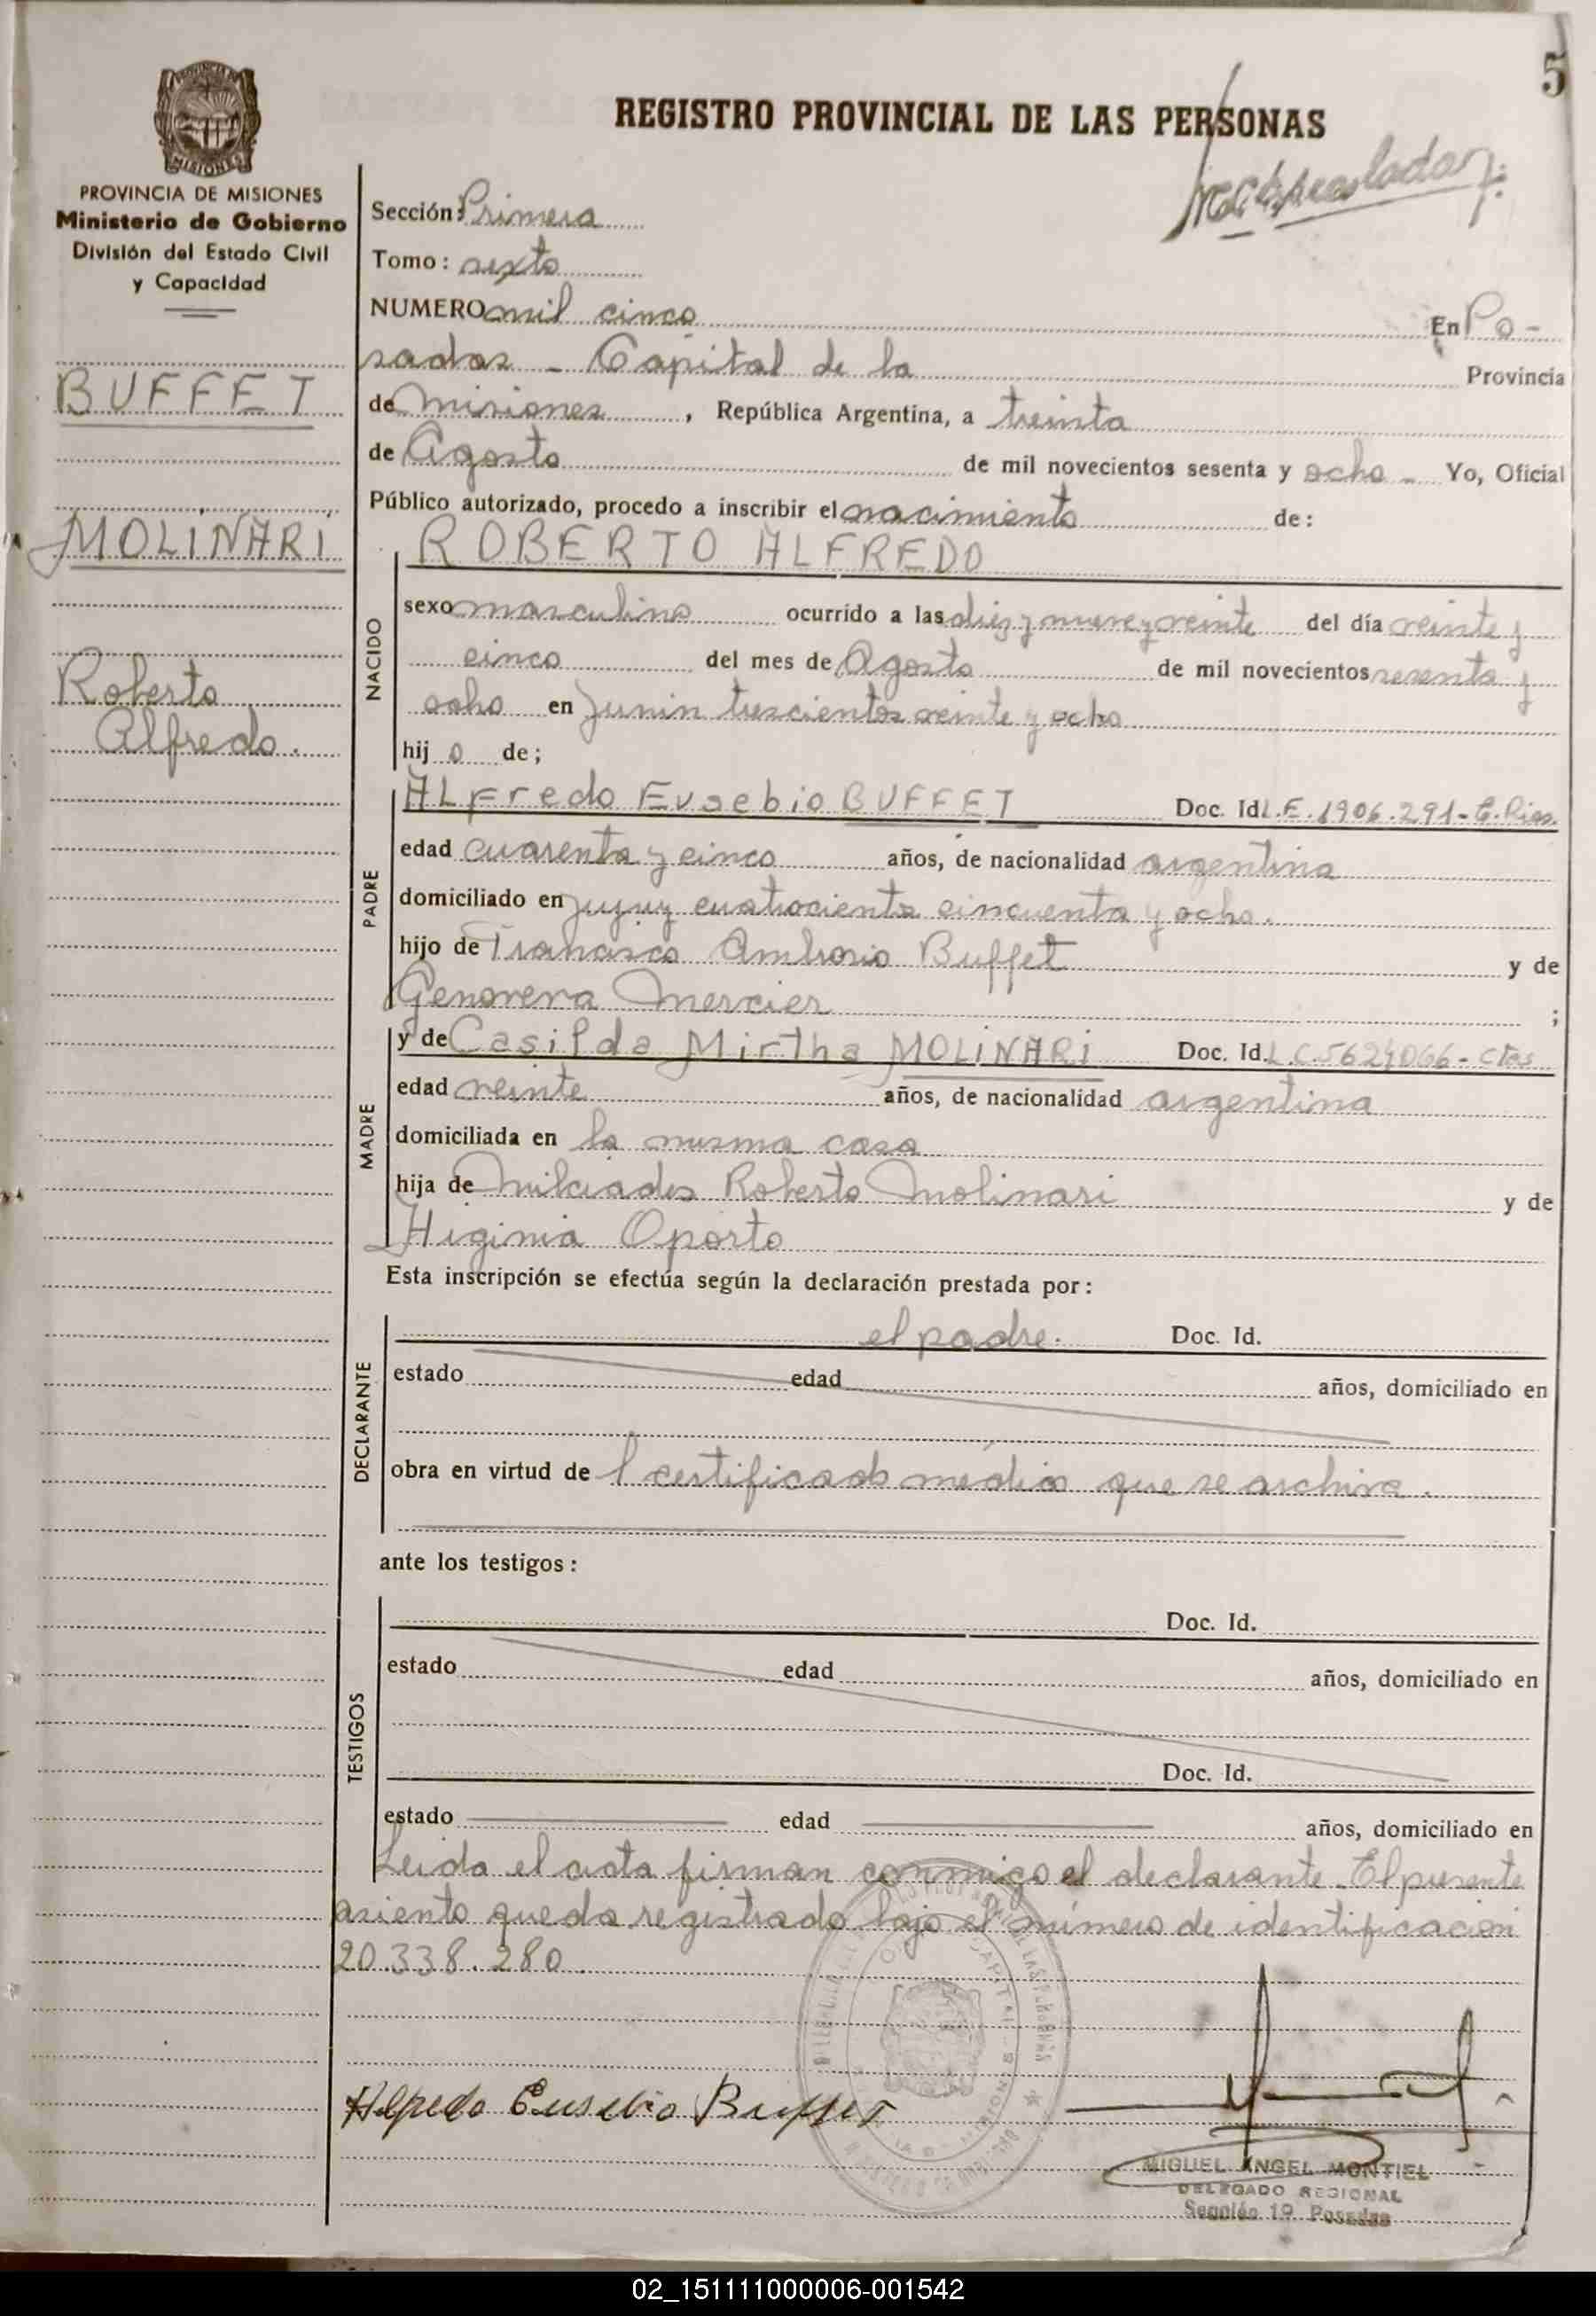 5
REGISTRO PROVINCIAL DE LAS PERSONAS
PROVINCIA DE MISIONES
MISIONES
PROVINCIA DE MISIONES
Ministerio de Gobierno
División del Estado Civil
y Capacidad
BUFFET
MOLINARI
Roberto
Alfredo.
Sección: Primera
Tomo: sexto
NUMERO mil cinco En Po-
sadas - Capital de la Provincia
de Misiones, República Argentina, a treinta
de Agosto de mil novecientos sesenta y ocho - Yo, Oficial
Público autorizado, procedo a inscribir el nacimiento de:
NACIDO
ROBERTO ALFREDO
sexo masculino ocurrido a las diez y nueve y veinte del día veinte y
cinco del mes de Agosto de mil novecientos sesenta y
ocho en Junin trescientos veinte y ocho
hij o de;
PADRE
ALFredo Eusebio BUFFET Doc. Id L.E. 1906.291-
edad cuarenta y cinco años, de nacionalidad argentina
domiciliado en Jujuy cuatrocientos cincuenta y ocho.
hijo de Francisco Ambrosio Buffet y de
Genoveva Mercier ;
MADRE
y de Casilda Mirtha MOLINARI Doc. Id. L.C.5624066-Ctes
edad veinte años, de nacionalidad argentina
domiciliada en la misma casa
hija de Milciades Roberto Molinari y de
Higinia Oporto
Esta inscripción se efectúa según la declaración prestada por:
DECLARANTE
el padre. Doc. Id.
estado edad años, domiciliado en
obra en virtud de l certificado médico que se archiva.
ante los testigos:
TESTIGOS
Doc. Id.
estado edad años, domiciliado en
Doc. Id.
estado edad años, domiciliado en
Leida el acta firman conmigo el declarante. El presente
asiento queda registrado bajo el número de identificación
20.338.280
Alfredo Eusebio Buffet
MIGUEL ANGEL MONTIEL
DELEGADO REGIONAL
Posadas
02_151111000006-001542